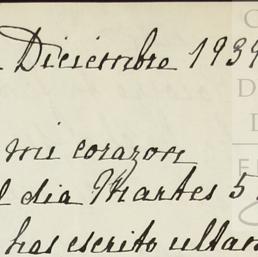 Diciembre 1939
mi corazon
dia Martes 5
has escrito